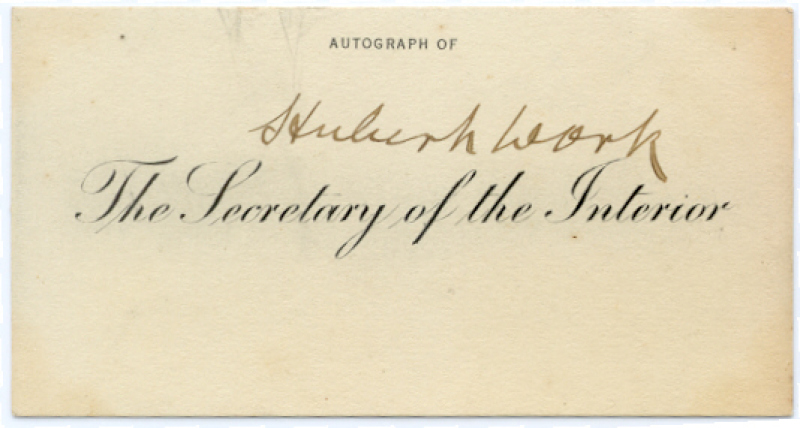 AUTOGRAPH OF
Hubert Work
The Secretary of the Interior